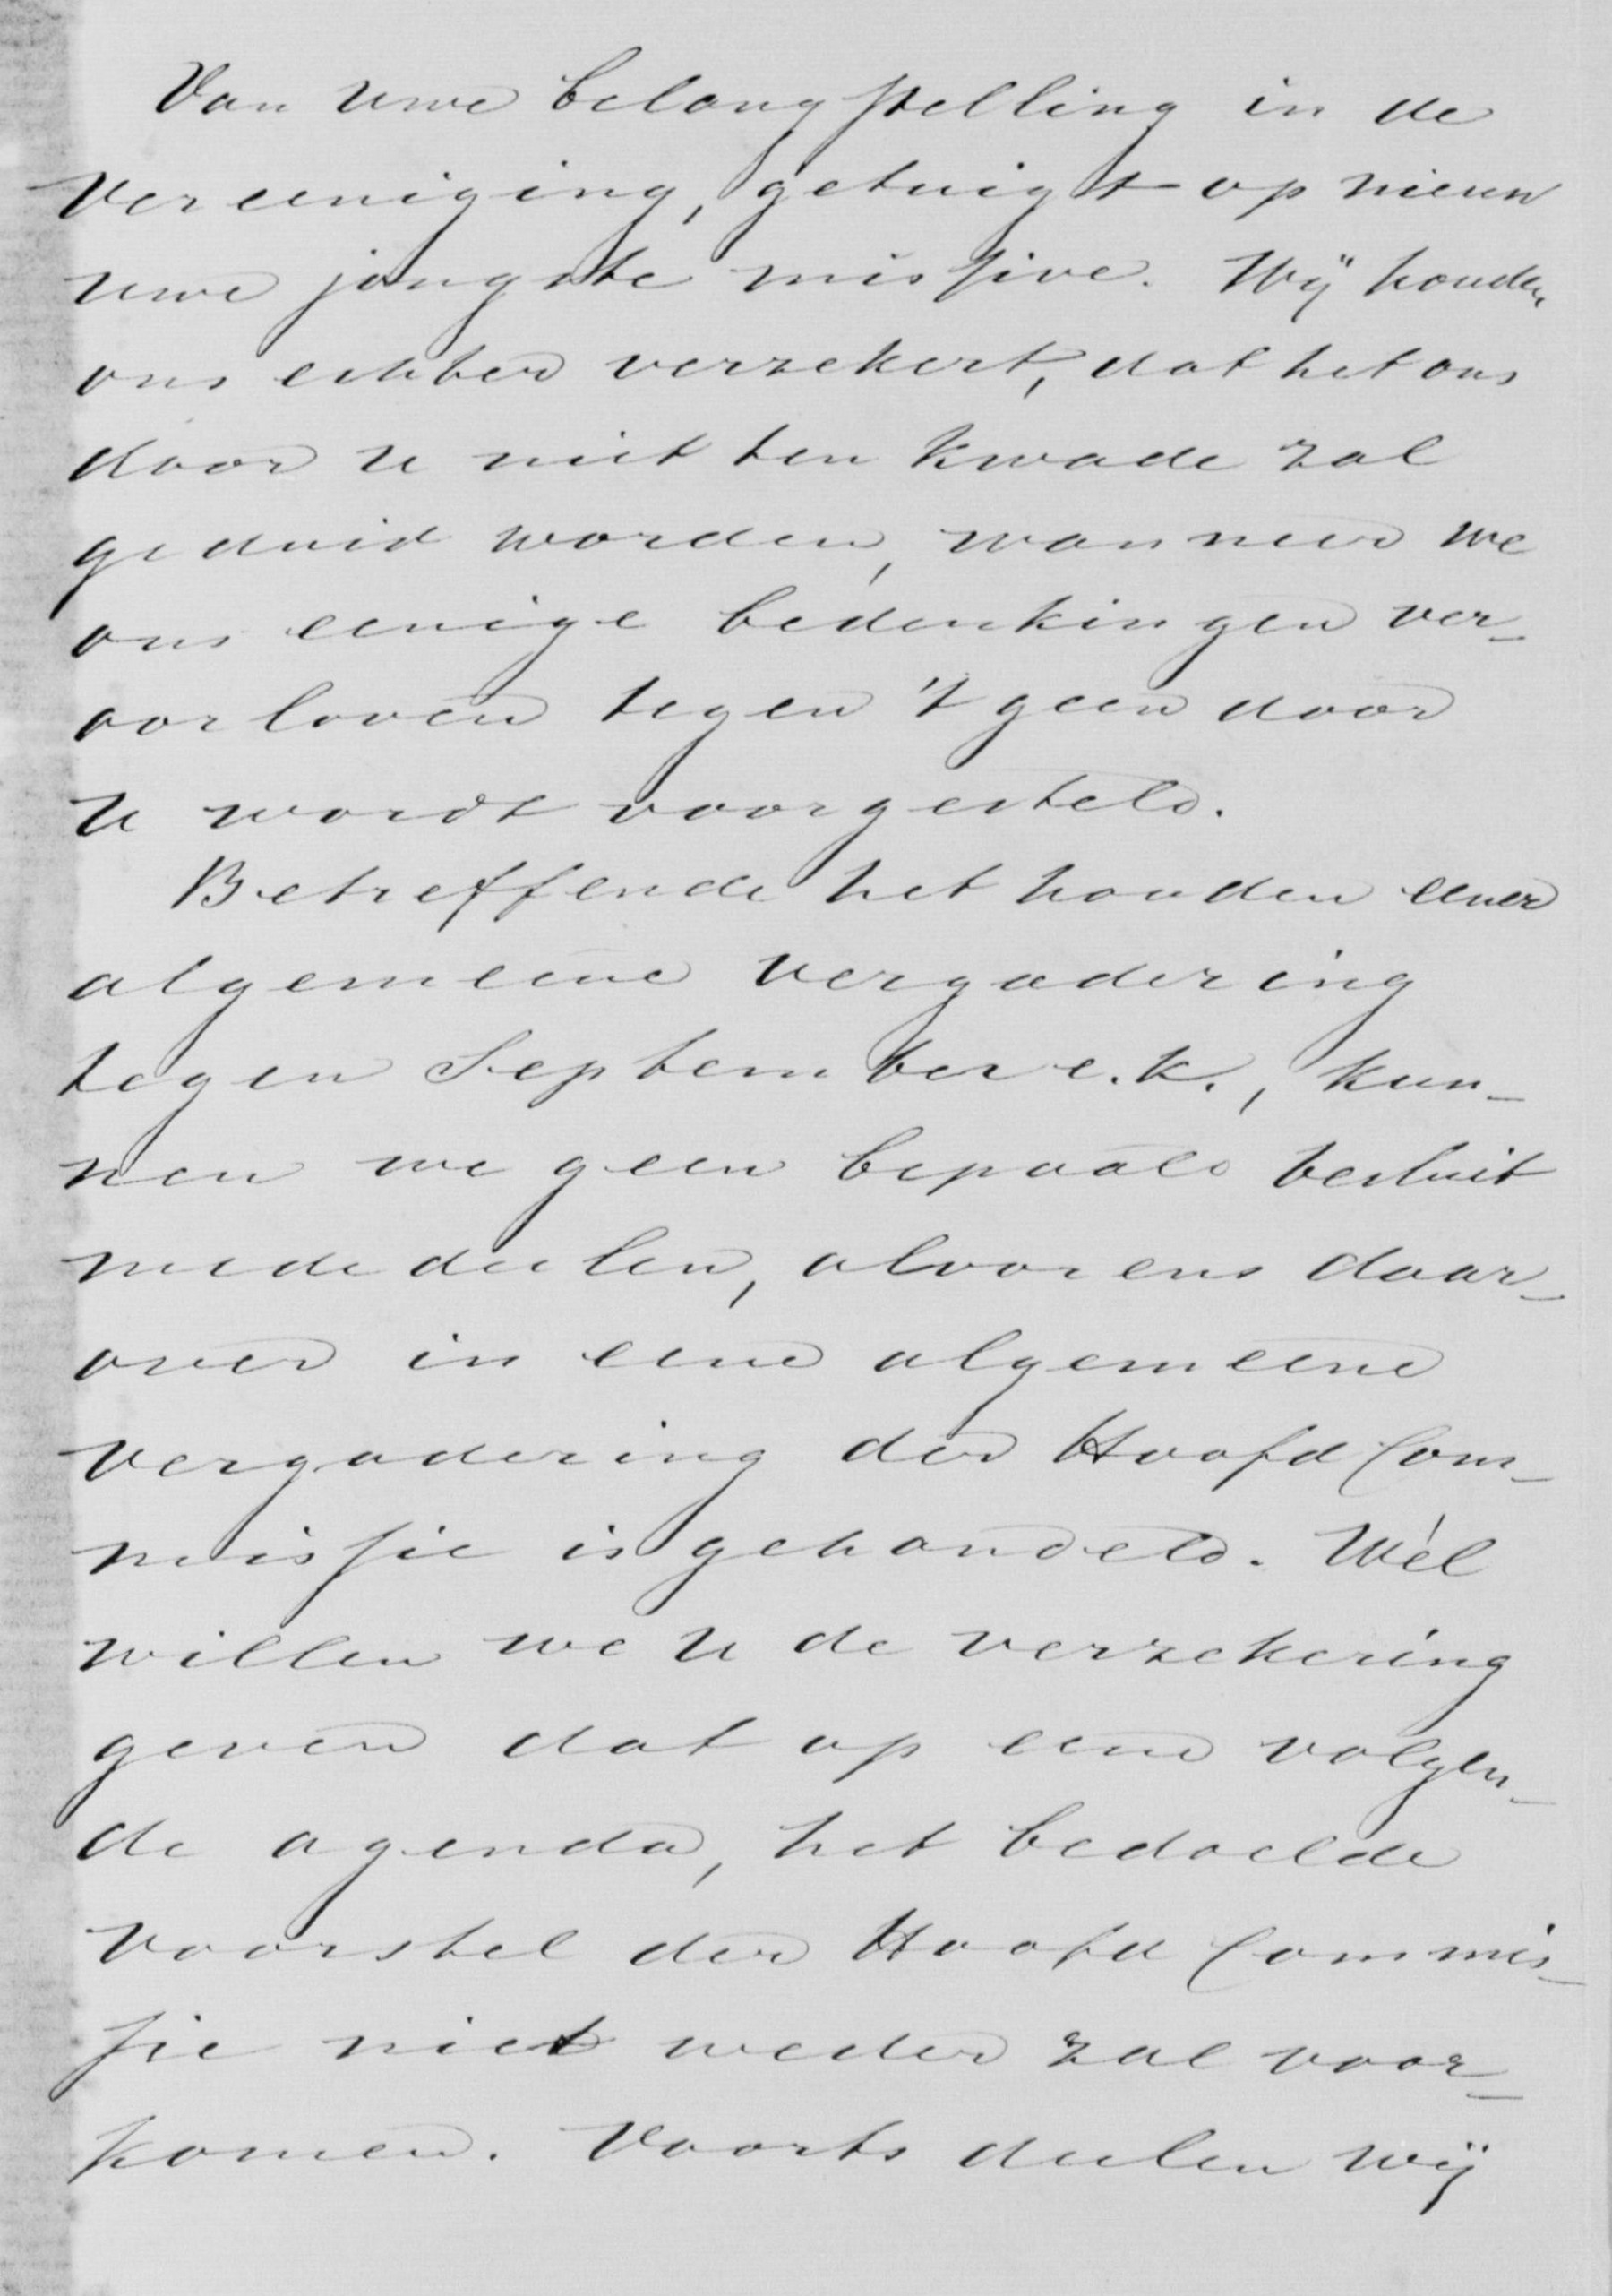 Van uwe belangstelling in de
Vereeniging, getuigt op nieuw
uwe jongste missive. Wij houden
ons echter verzekert, dat het ons
door u niet ten kwade zal
geduid worden, wanneer we
ons eenige bedenkingen ver-
oorloven tegen 't geen door
u wordt voorgesteld.
Betreffende het houden eener
algemeene vergadering
tegen September e.k., kun-
nen we geen bepaald besluit
mededeelen, alvorens daar-
over in eene algemeene
vergadering der Hoofd Com-
missie is gehandeld. Wèl
willen we u de verzekering
geven dat op eene volgen-
de agenda, het bedoelde
voorstel der Hoofd Commis-
sie niet weder zal voor-
komen. Voorts deelen wij